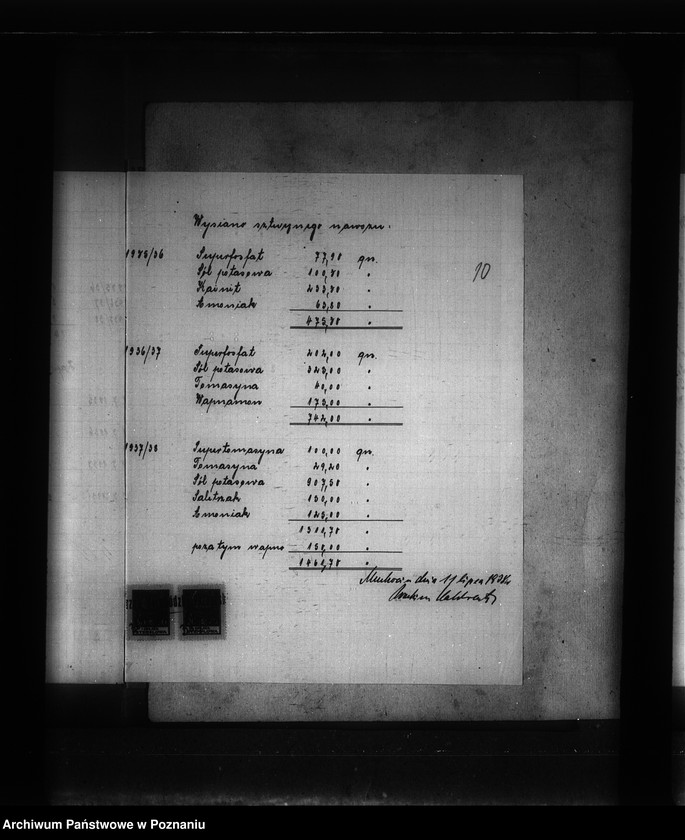 Wysiano sztucznego nawozu.
10
1935/36 Superfosfat 77,98 qn.
Sól potasowa 100,70 "
Kainit 233,70 "
Amoniak 63,50 "
"
1936/37 Superfosfat 202,00 qn.
Sól potasowa 325,00 "
Tomasyna 40,00 "
Wapnamon 175,00 "
742,00 "
1937/38 Supertomasyna 100,00 qn.
Tomasyna 29,20 "
Sól potasowa 907,58 "
Saletrzak 150,00 "
Amoniak 125,00 "
1311,78 "
poza tym wapno 150,00 "
1461,78 "
dnia 11 lipca
Archiwum Państwowe w Poznaniu